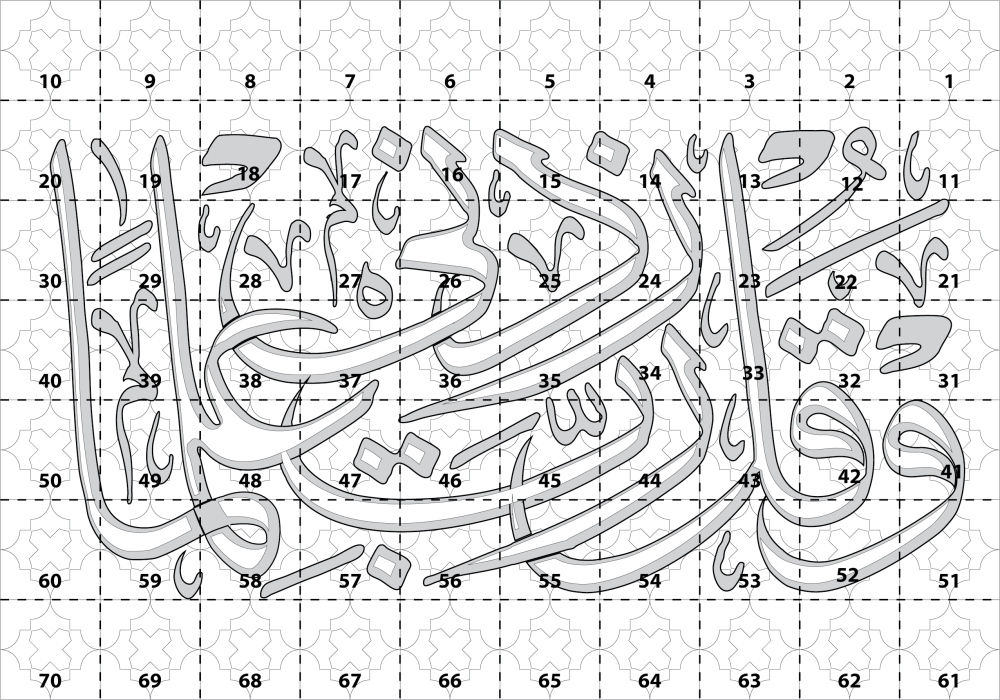 وقل رب زدني علما
10 9 8 7 6 5 4 3 2 1
20 19 18 17 16 15 14 13 12 11
30 29 28 27 26 25 24 23 22 21
40 39 38 37 36 35 34 33 32 31
50 49 48 47 46 45 44 43 42 41
60 59 58 57 56 55 54 53 52 51
70 69 68 67 66 65 64 63 62 61